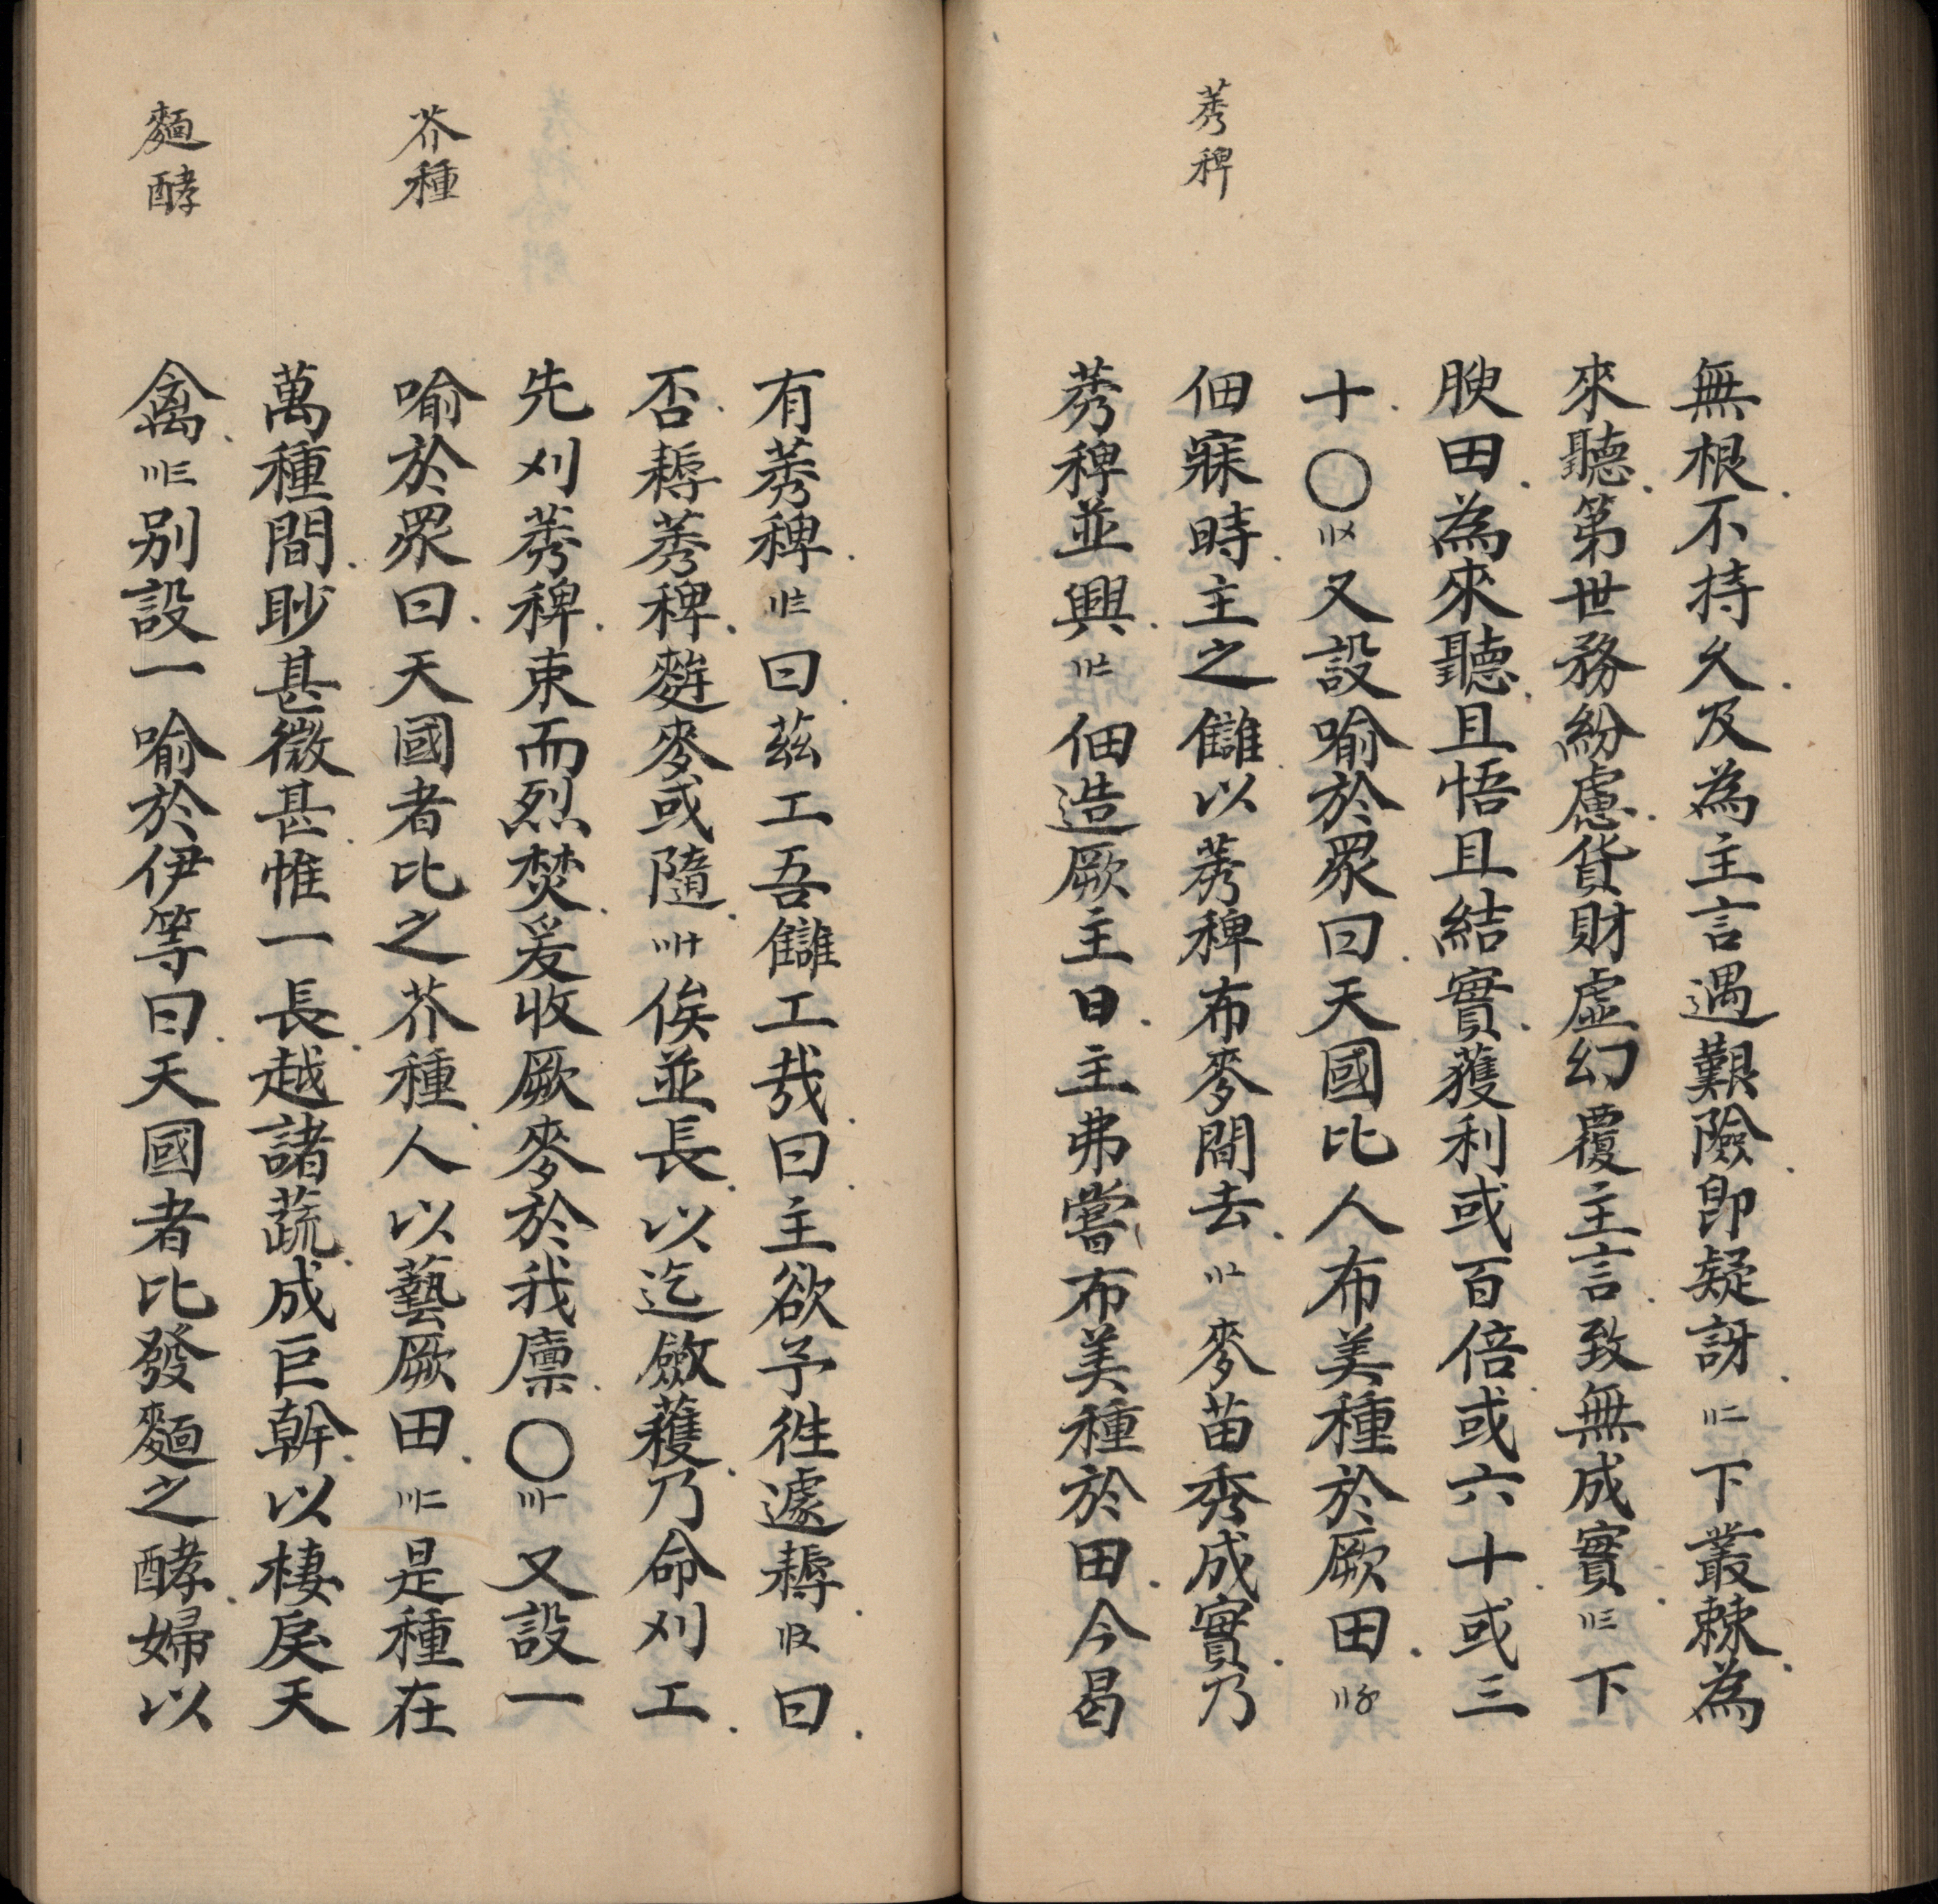 莠稗
無根不持久及為主言遇艱險即疑訝〢二下叢棘為
來聽第世務紛慮貨財虛幻覆主言致無成實〢三下
腴田為來聽且悟且結實獲利或百倍或六十或三
十〇〢〤又設喻於眾曰天國比人布美種於厥田〢〥
佃寐時主之讎以莠稗布麥間去〢〦麥苗秀成實乃
莠稗並興〢〧佃造厥主曰主弗嘗布美種於田今曷
芥種
麵酵
有莠稗〢〨曰茲工吾讎工哉曰主欲予徃遽耨〢〩曰
否耨莠稗麰麥或隨〣十俟並長以迄斂穫乃命刈工
先刈莠稗束而烈焚爰收厥麥於我廩〇〣一又設一
喻於眾曰天國者比之芥種人以藝厥田〣二是種在
萬種間眇甚微甚惟一長越諸蔬成巨幹以棲戾天
禽〣三别設一喻於伊等曰天國者比發麵之酵婦以